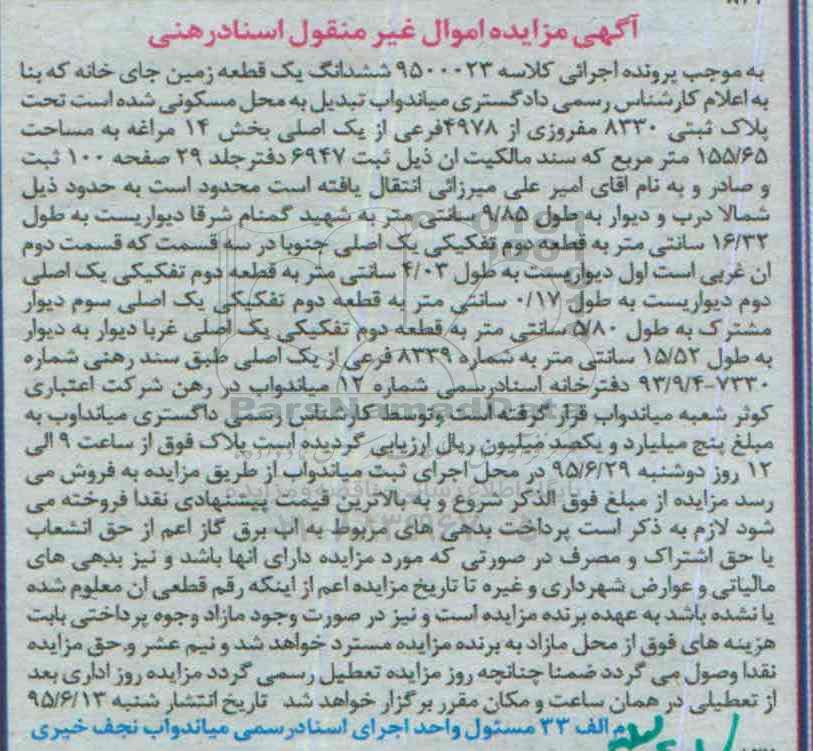 آگهی مزایده اموال غیر منقول اسناد رهنی
به موجب پرونده اجرائی کلاسه ۹۵۰۰۰۲۳ ششدانگ یک قطعه زمین جای خانه که بنا
به اعلام کارشناس رسمی دادگستری میاندواب تبدیل به محل مسکونی شده است تحت
پلاک ثبتی ۸۳۳۰ مفروزی از ۴۹۷۸فرعی از یک اصلی بخش ۱۴ مراغه به مساحت
۱۵۵/۶۵ متر مربع که سند مالکیت ان ذیل ثبت ۶۹۴۷ دفتر جلد ۲۹ صفحه ۱۰۰ ثبت
و صادر و به نام اقای امیر علی میرزائی انتقال یافته است محدود است به حدود ذیل
شمالا درب و دیوار به طول ۹/۸۵ سانتی متر به شهید گمنام شرقا دیواریست به طول
۱۶/۳۲ سانتی متر به قطعه دوم تفکیکی یک اصلی جنوبا در سه قسمت که قسمت دوم
ان غربی است اول دیواریست به طول ۴/۰۳ سانتی متر به قطعه دوم تفکیکی یک اصلی
دوم دیواریست به طول ۰/۱۷ سانتی متر به قطعه دوم تفکیکی یک اصلی سوم دیوار
مشترک به طول ۵/۸۰ سانتی متر به قطعه دوم تفکیکی یک اصلی غربا دیوار به دیوار
به طول ۱۵/۵۲ سانتی متر به شماره ۸۳۳۹ فرعی از یک اصلی طبق سند رهنی شماره
۷۳۳۰-۹۳/۹/۴ دفترخانه اسناد رسمی شماره ۱۲ میاندواب در رهن شرکت اعتباری
کوثر شعبه میاندواب قرار گرفته است وتوسط کارشناس رسمی داگستری میانداوب به
مبلغ پنج میلیارد و یکصد میلیون ریال ارزیابی گردیده است پلاک فوق از ساعت ۹ الی
۱۲ روز دوشنبه ۹۵/۶/۲۹ در محل اجرای ثبت میاندواب از طریق مزایده به فروش می
رسد مزایده از مبلغ فوق الذکر شروع و به بالاترین قیمت پیشنهادی نقدا فروخته می
شود لازم به ذکر است پرداخت بدهی های مربوط به اب برق گاز اعم از حق انشعاب
یا حق اشتراک و مصرف در صورتی که مورد مزایده دارای انها باشد و نیز بدهی های
مالیاتی و عوارض شهرداری و غیره تا تاریخ مزایده اعم از اینکه رقم قطعی ان معلوم شده
یا نشده باشد به عهده برنده مزایده است و نیز در صورت وجود مازاد وجوه پرداختی بابت
هزینه های فوق از محل مازاد به برنده مزایده مسترد خواهد شد و نیم عشر و حق مزایده
نقدا وصول می گردد ضمنا چنانچه روز مزایده تعطیل رسمی گردد مزایده روز اداری بعد
از تعطیلی در همان ساعت و مکان مقرر برگزار خواهد شد تاریخ انتشار شنبه ۹۵/۶/۱۳
م الف ۳۳ مسئول واحد اجرای اسناد رسمی میاندواب نجف خیری
ParsNamadData